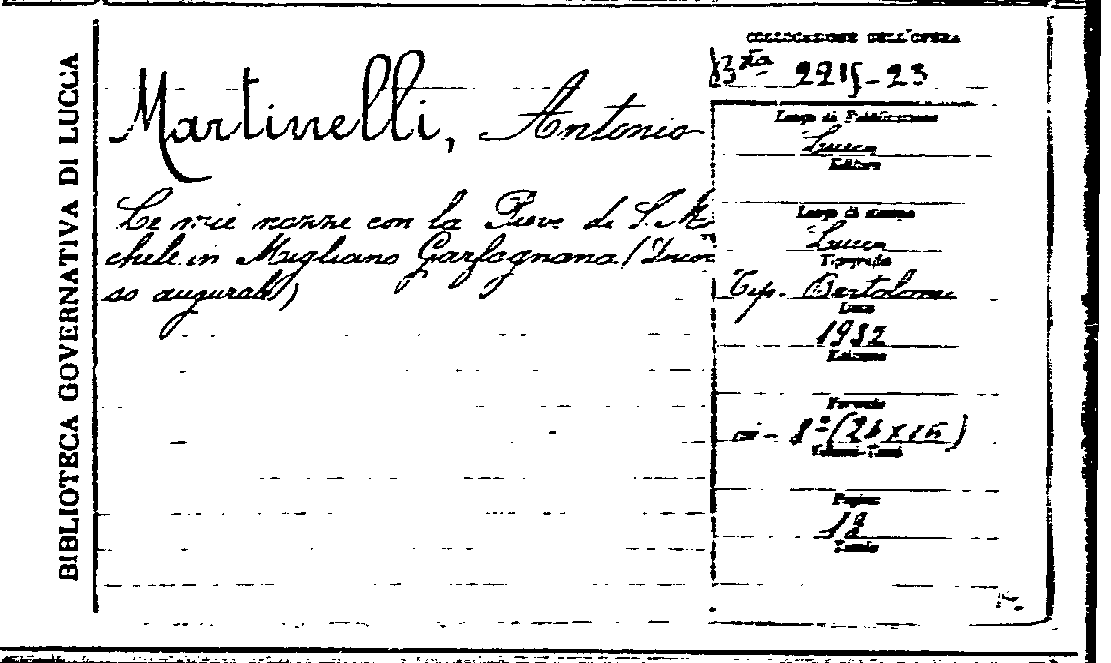 BIBLIOTECA GOVERNATIVA DI LUCCA
Martinelli, Antonio
Le mie nozze con la Pieve di S. Mi
chele in Magliano Garfagnana (Discor
so augurale)
COLLOCAZIONE DELL'OPERA
Bsta 2215-23
Luogo di Pubblicazione
Lucca
Editore
Luogo di stampa
Lucca
Tipografia
Tip. Bertolomei
Anno
1932
Edizione
Formato
in-8º
Volumi-Tomi
Pagine
Tavole